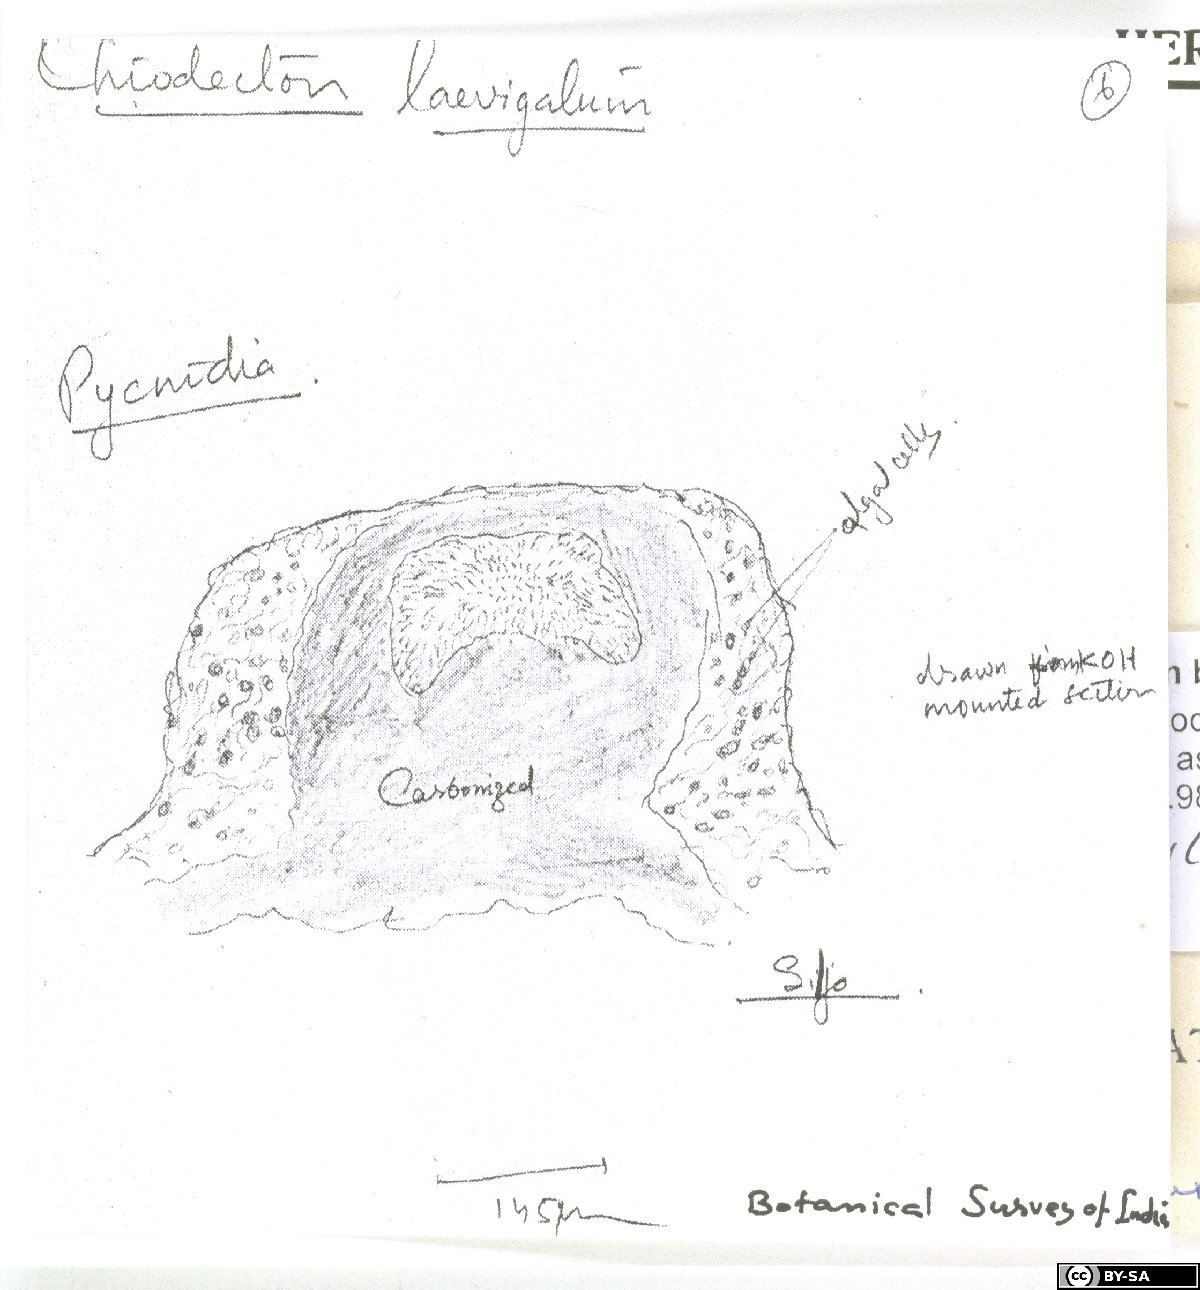 Chiodecton laevigatum
6
HER
Pycnidia.
algal cells.
drawn from KOH
mounted section
Carbonized
Sijo.
145µm
Botanical Survey of India
BY-SA